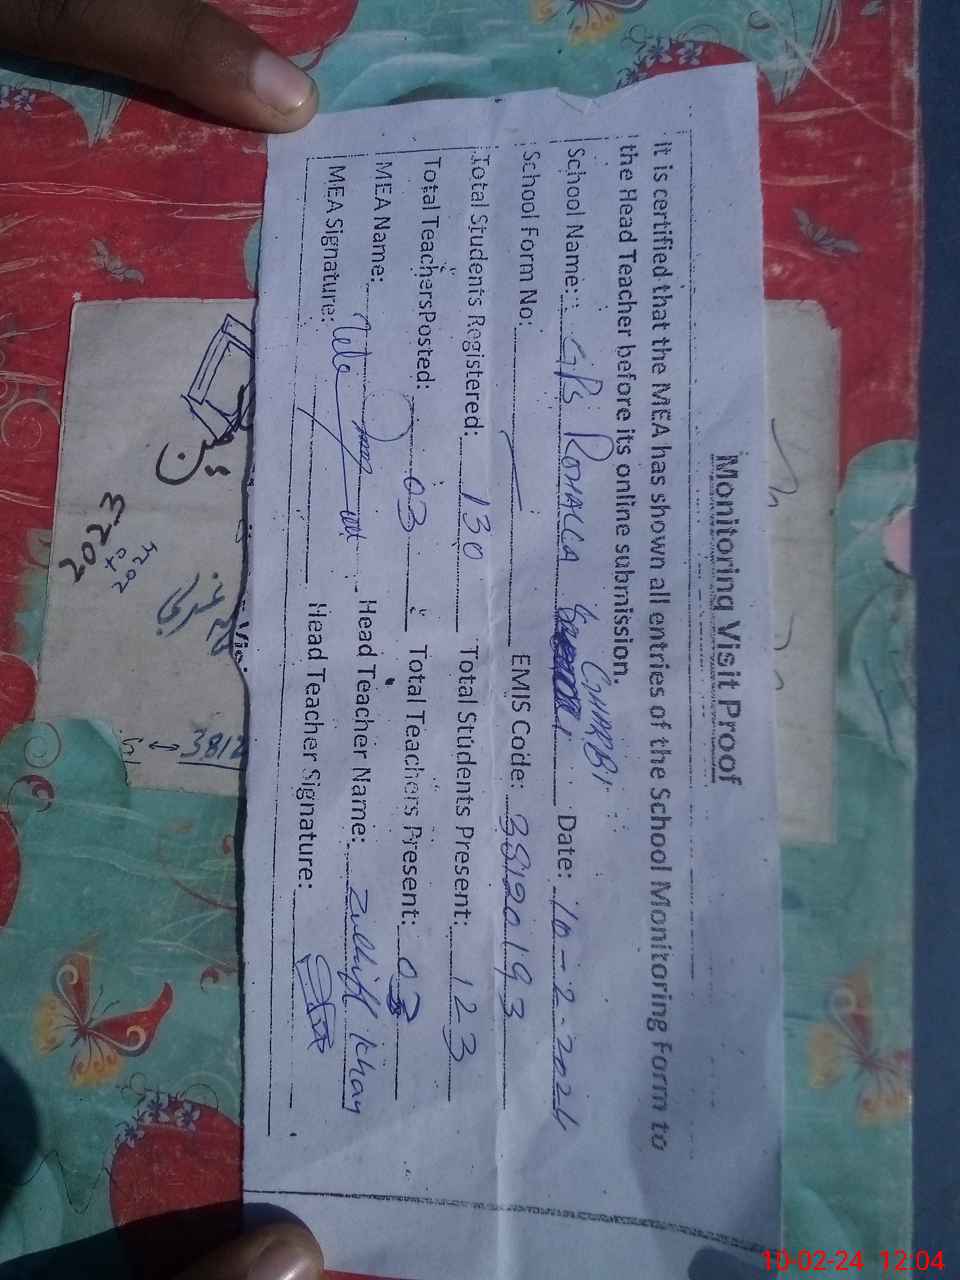 Monitoring Visit Proof
It is certified that the MEA has shown all entries of the School Monitoring Form to
the Head Teacher before its online submission.
GHARBI
School Name: GPS ROHALLA Date: 10-2-2024
School Form No: EMIS Code: 38120193
Total Students Registered: 130 Total Students Present: 123
Total Teachers Posted: 03 Total Teachers Present: 03
MEA Name: Head Teacher Name: Khan
MEA Signature: Head Teacher Signature:
2023
to
2024
3812
10-02-24 12:04